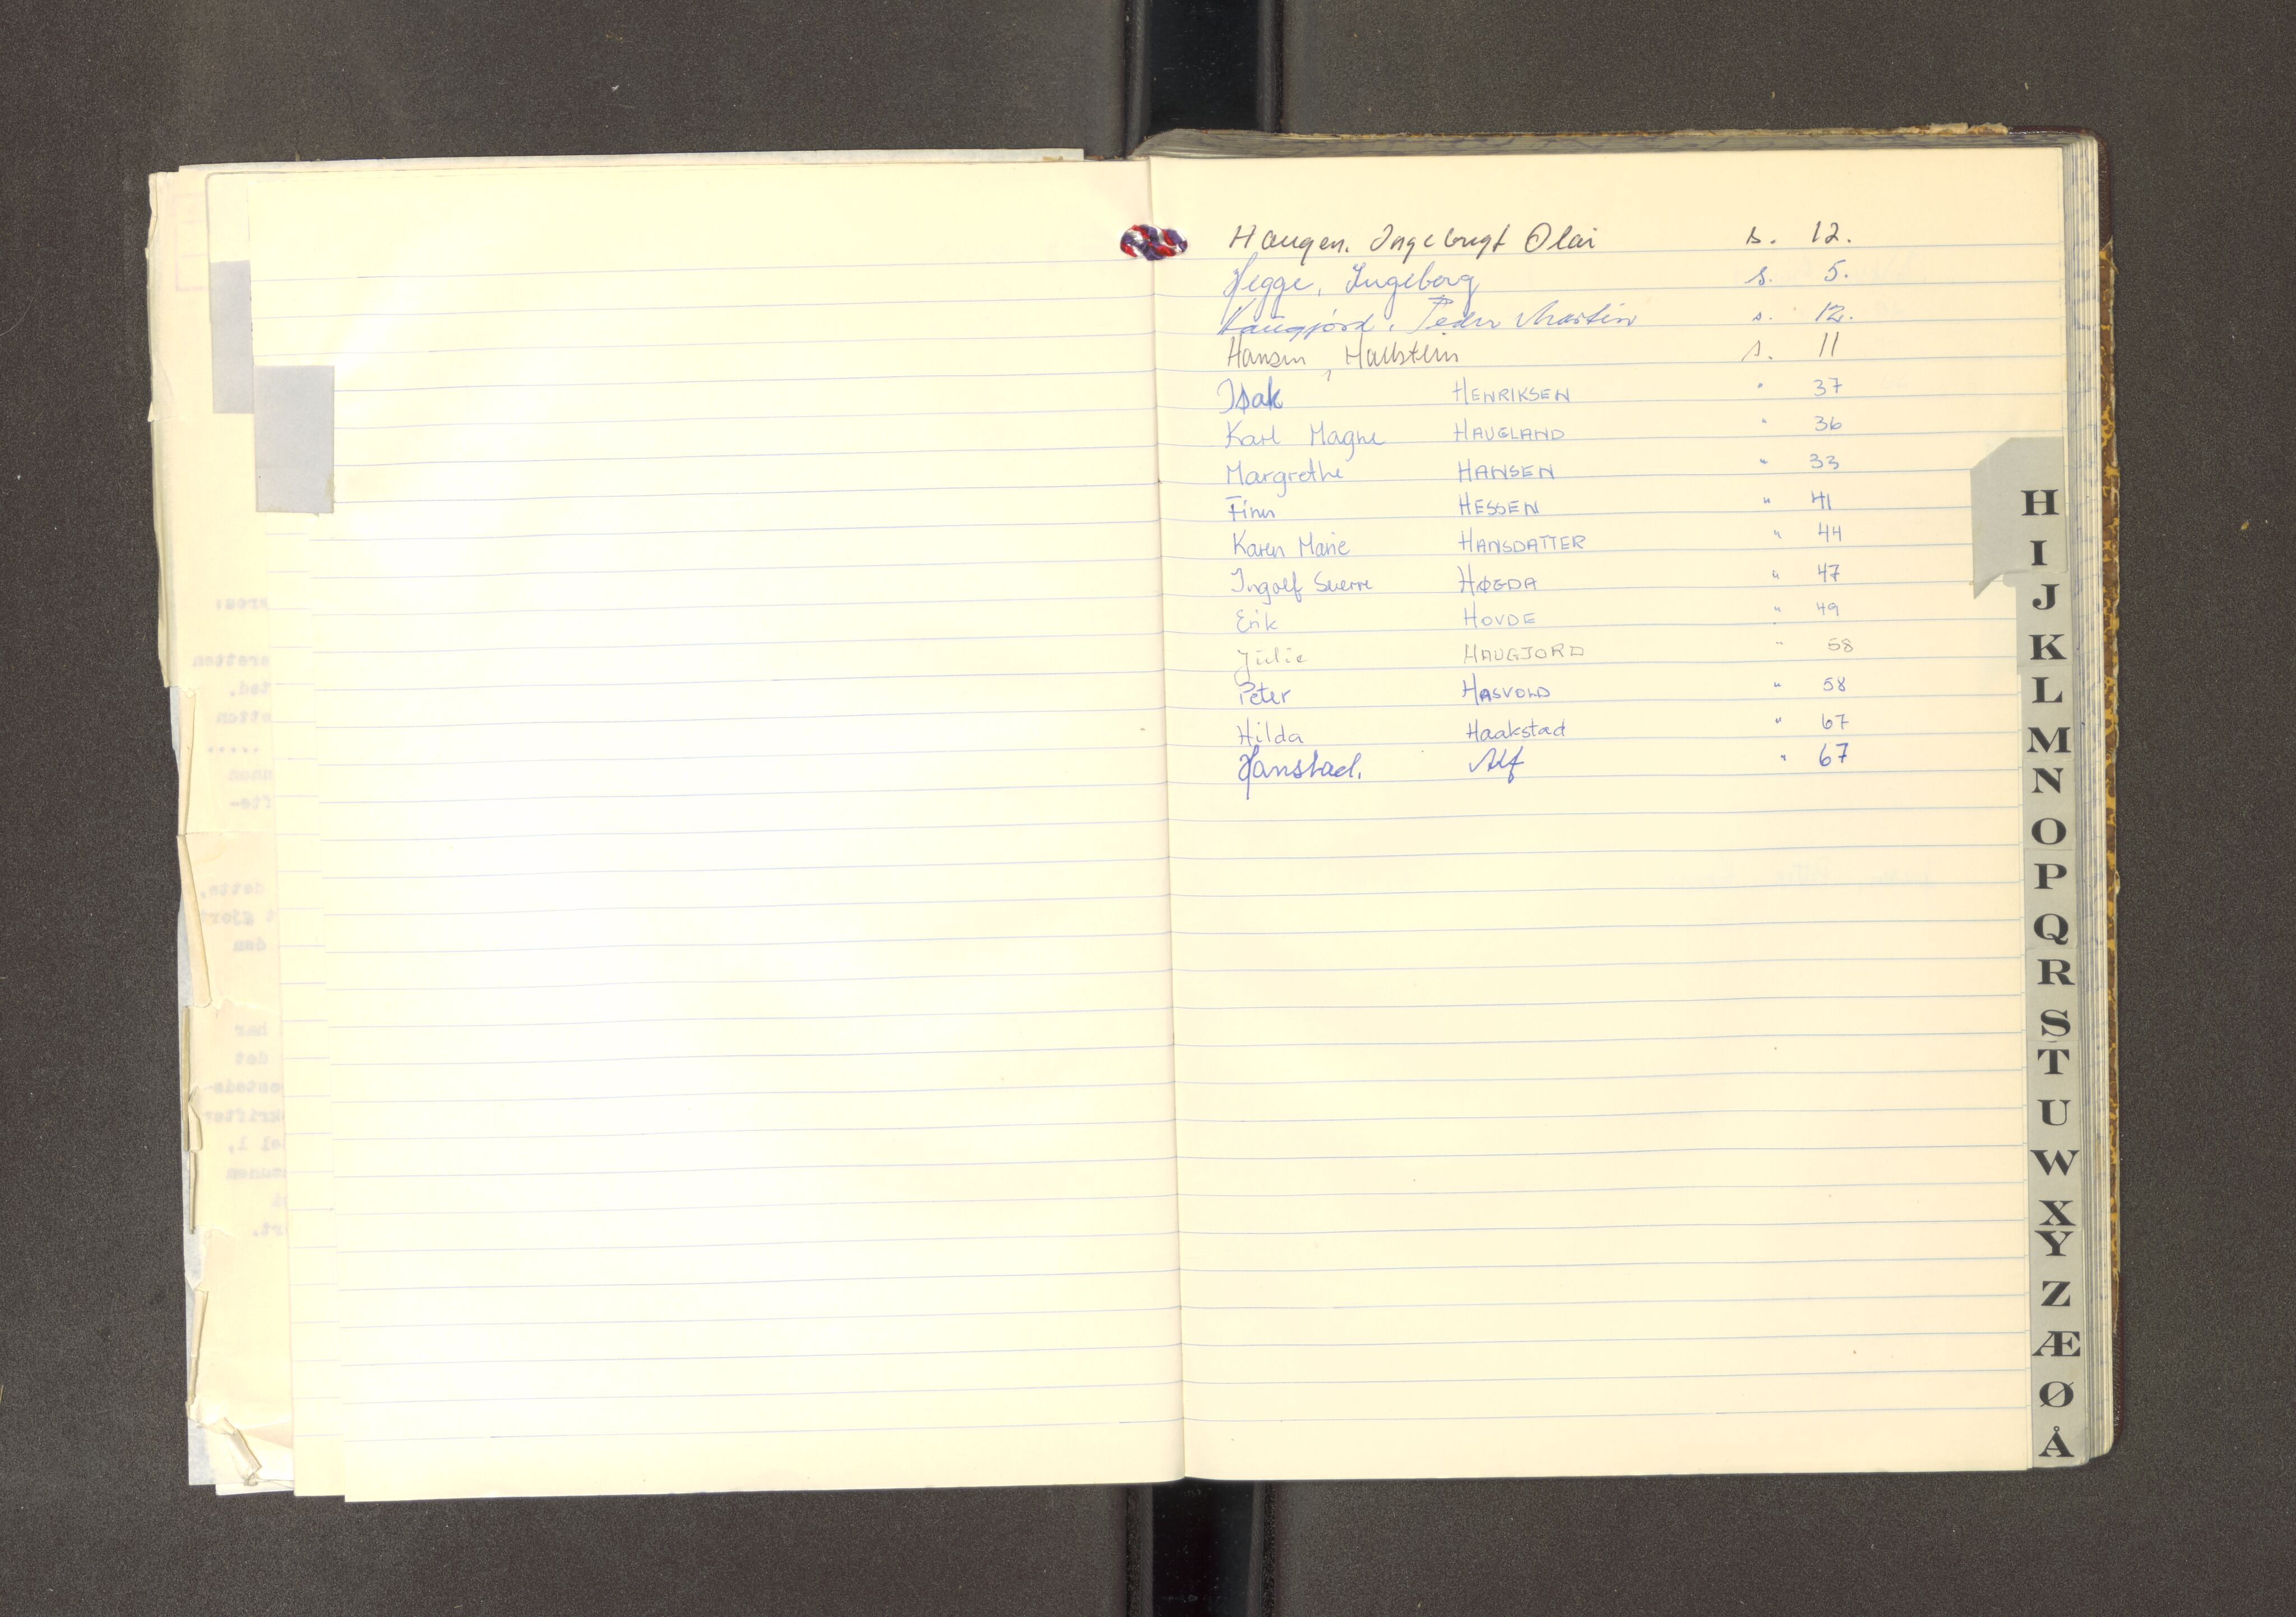 Haugen. Ingebrigt Olai s. 12.
Hegge, Ingeborg s. 5.
Haugjord, Peder Martin s. 12.
Hansen, Hallstein s. 11
Isak HENRIKSEN " 37
Karl Magne HAUGLAND " 36
Margrethe HANSEN " 33
Finn HESSEN " 41
Karen Marie HANSDATTER " 44
Ingolf Sverre HØGDA " 47
Erik HOVDE " 49
Julie HAUGJORD " 58
Peter HASVOLD " 58
Hilda Haakstad " 67
Hanstad, Alf " 67
H
I
J
K
L
M
N
O
P
Q
R
S
T
U
W
X
Y
Z
Æ
Ø
Å